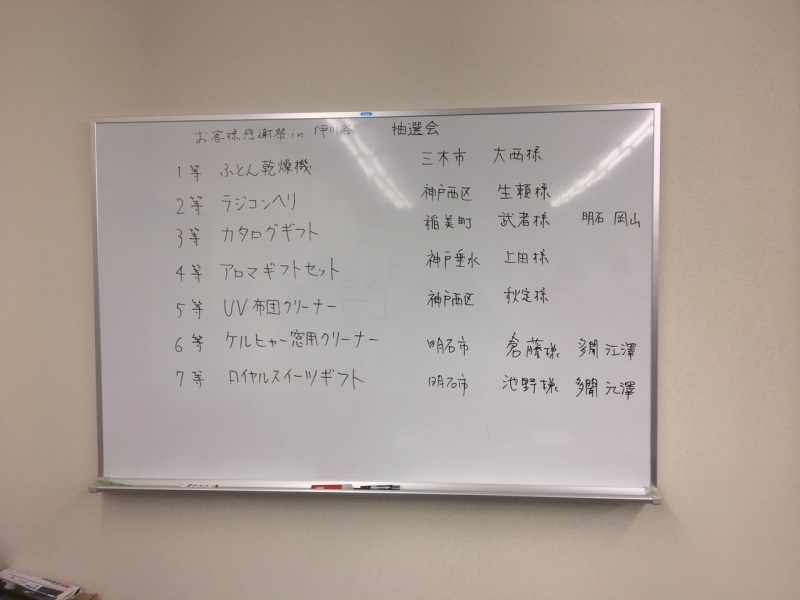 お客様感謝祭 in 伊川谷 抽選会
1等 ふとん乾燥機 三木市 大西様
2等 ラジコンヘリ 神戸西区 生頼様
3等 カタログギフト 稲美町 武者様 明石 岡山
4等 アロマギフトセット 神戸垂水 上田様
5等 UV布団クリーナー 神戸西区 秋定様
6等 ケルヒャー窓用クリーナー 明石市 倉藤様 多聞 江澤
7等 ロイヤルスイーツギフト 明石市 池野様 多聞 江澤